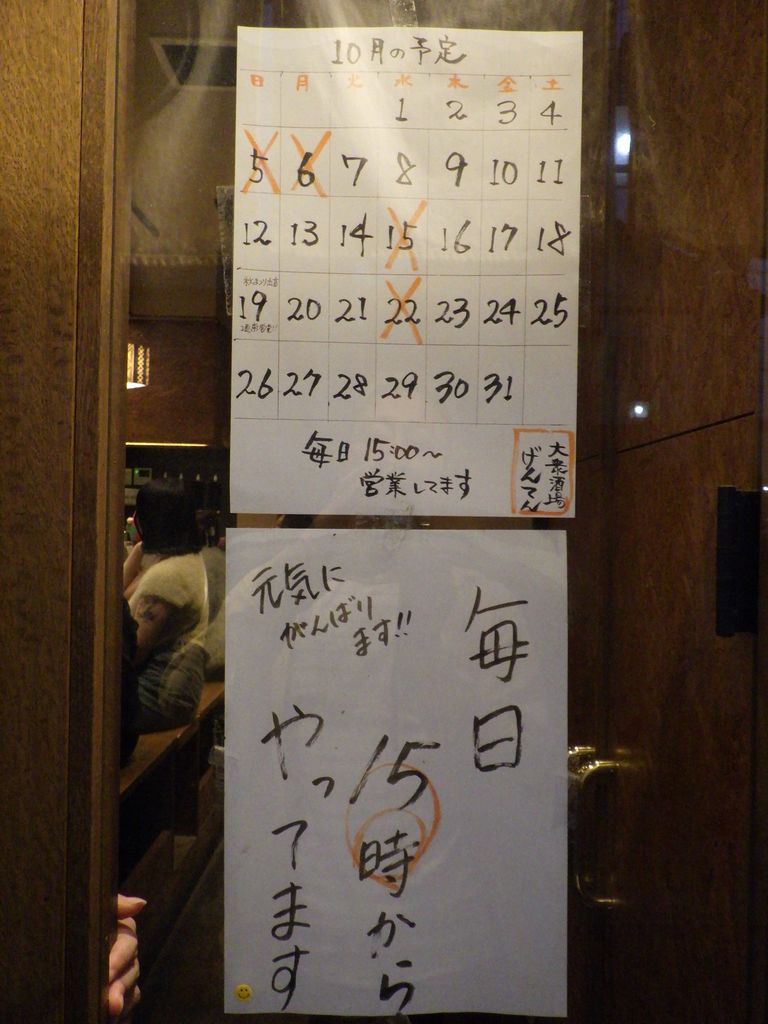 10月の予定
日 月 火 水 木 金 土
1 2 3 4
5 6 7 8 9 10 11
12 13 14 15 16 17 18
19 20 21 22 23 24 25
26 27 28 29 30 31
毎日 15:00～
営業してます
大衆酒場
げんてん
元気に
がんばり
ます!!
毎日
15時から
やってます